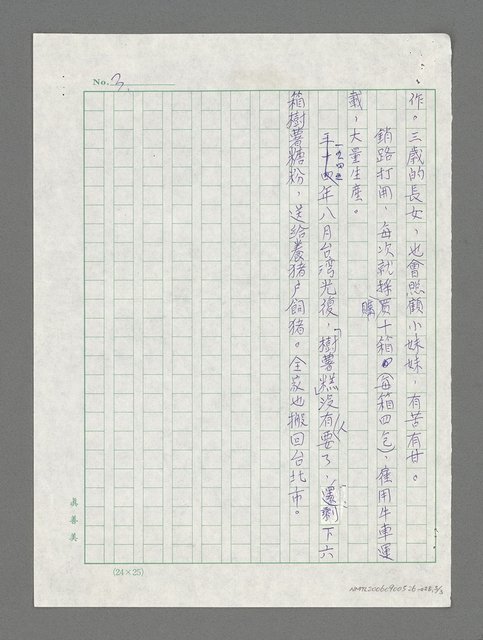 No. 3.
作。三歲的長女，也會照顧小妹妹，有苦有甘。
銷路打開，每次就採購買十箱（每箱四包），僱用牛車運
載，大量生產。
一九四五年八月台湾光復，「樹薯糕」沒有人要了，還剩下六
箱樹薯糖粉，送給養猪户飼猪。全家也搬回台北市。
真善美
(24×25)